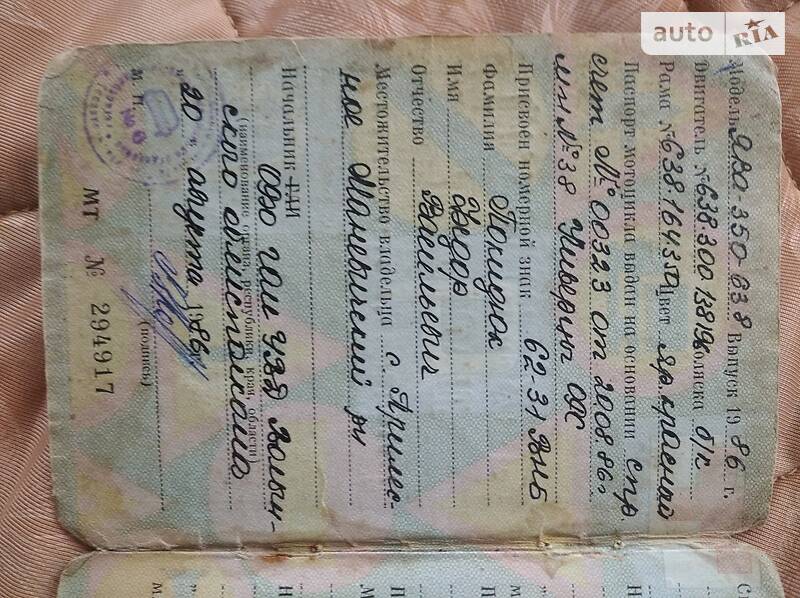 auto RIA
Модель Ява-350-638 Выпуск 1986 г.
Двигатель № 638.300 13819 Коляска б/к
Рама № 638 164350 Цвет яр. красный
Паспорт мотоцикла выдан на основании спр.
счет № 00323 от 200886г
Универмаг
Присвоен номерной знак 62-31 ВНБ
Фамилия Полидюк
Имя
Отчество Васильевич
Местожительство владельца с. Прилес-
ное Маневический р-н
Начальник ГАИ
ГАИ УВД Волын-
(наименование органа, республики, края, области)
ского облисполкома
"20" августа 1986 г.
М. П.
(подпись)
МТ № 294917